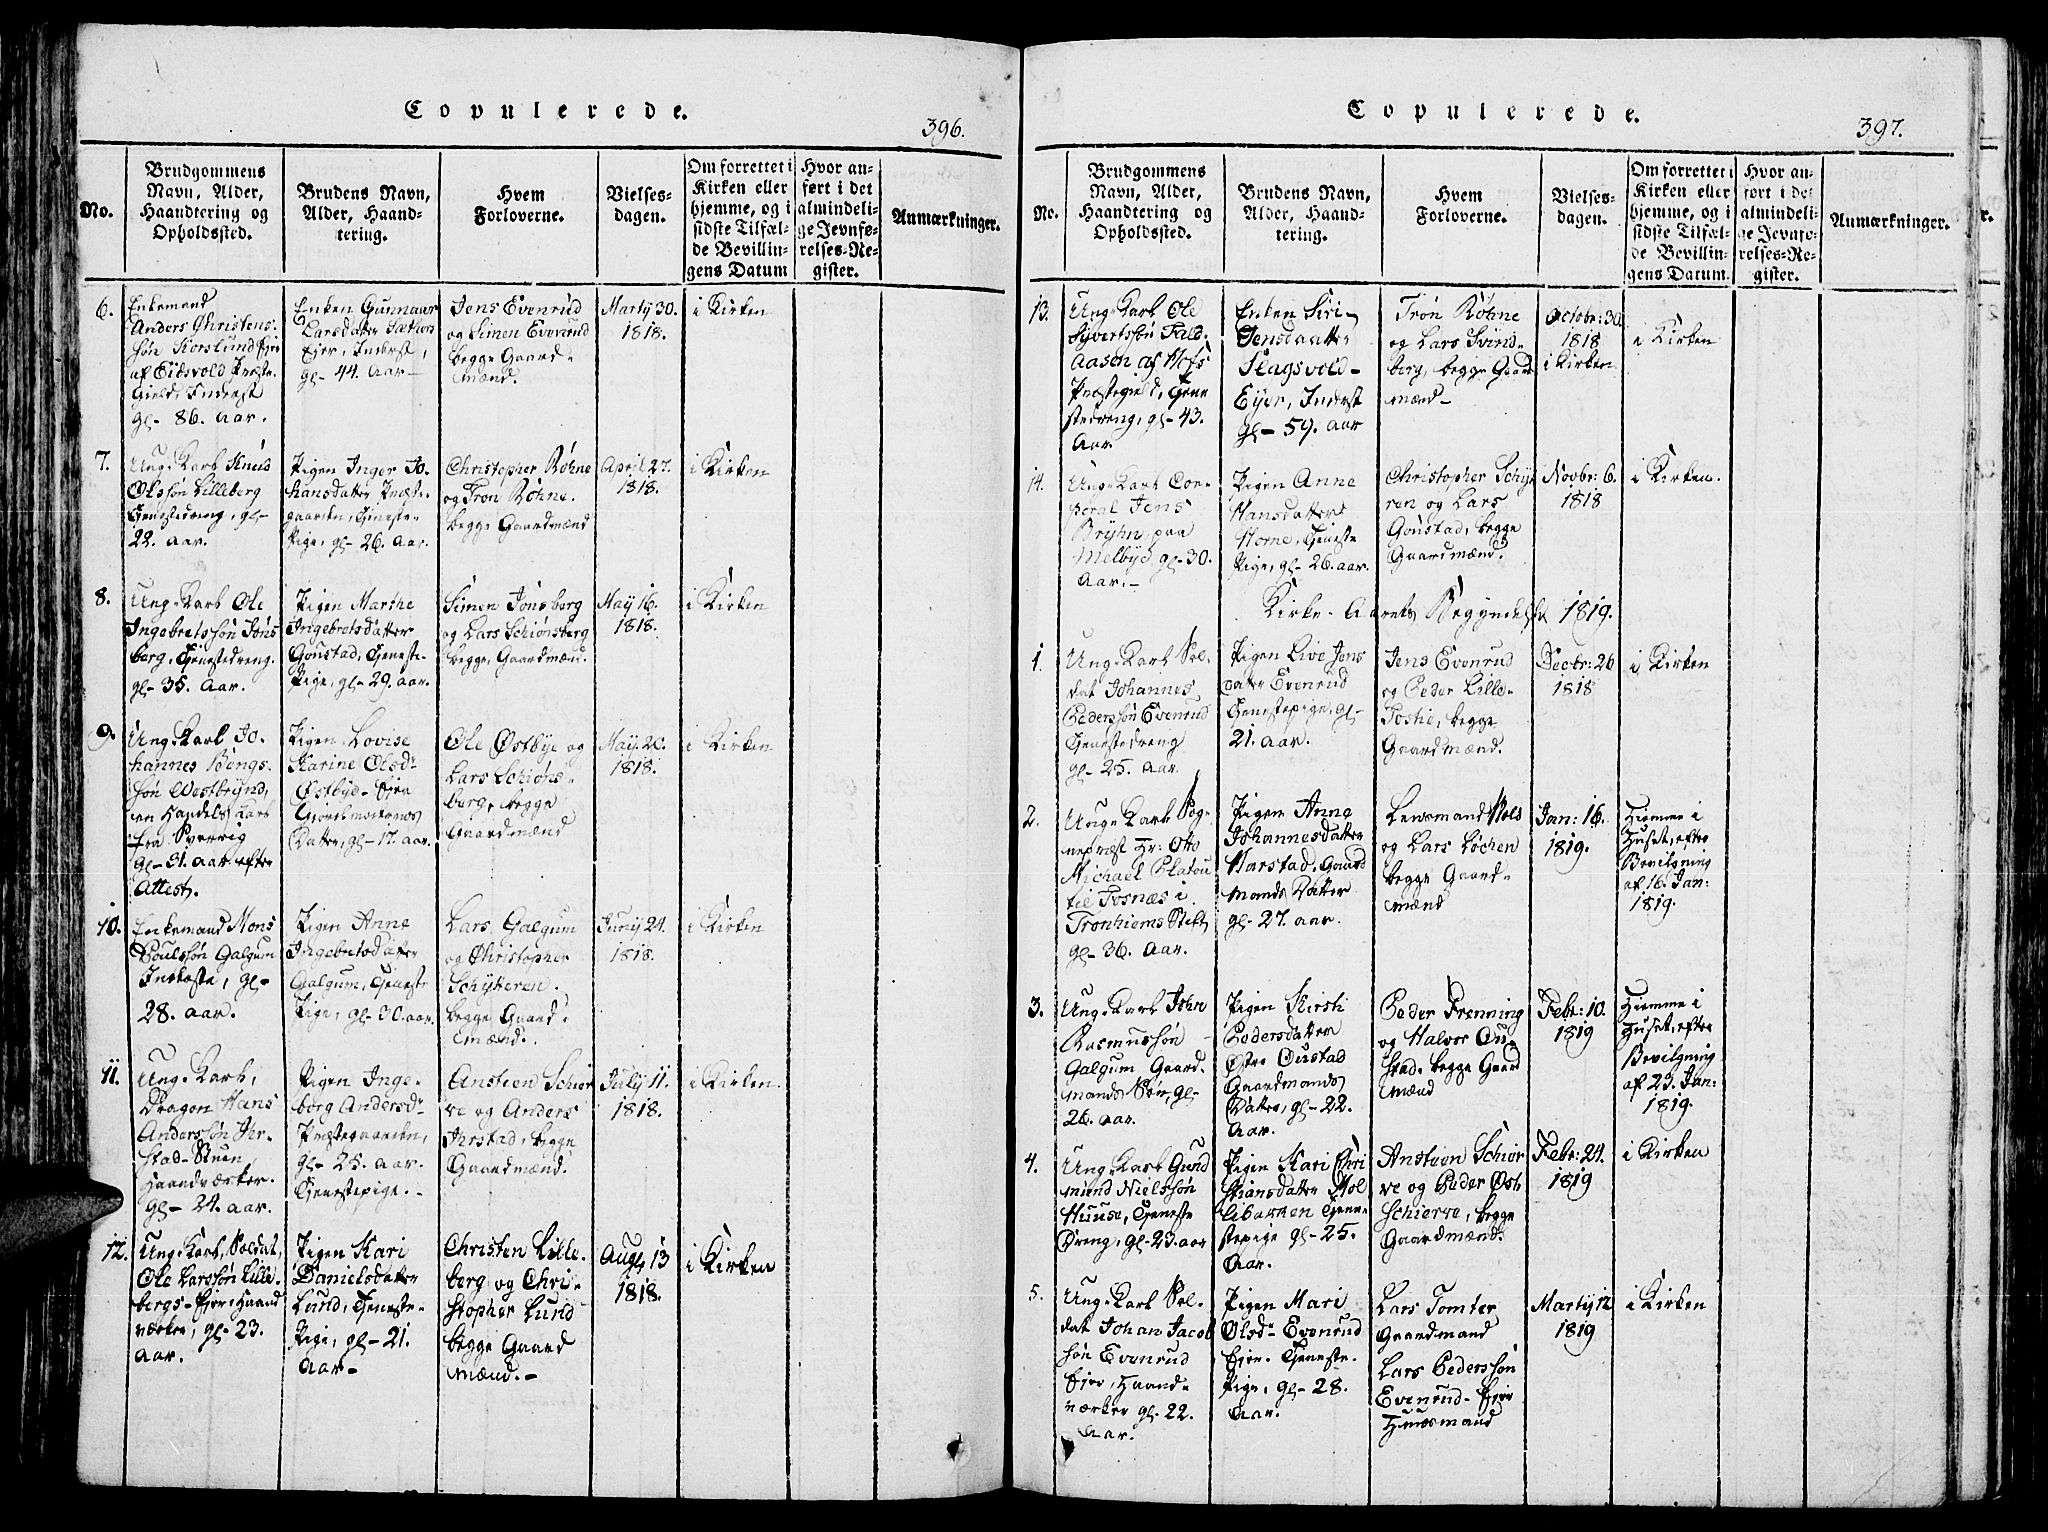 Copulerede.
396.
No.
Brudgommens
Navn, Alder,
Haandtering og
Opholdssted.
Brudens Navn,
Alder, Haand-
tering.
Hvem
Forloverne.
Vielses-
dagen.
Om forrettet i
Kirken eller
hjemme, og i
sidste Tilfæl-
de Bevillin-
gens Datum
Hvor an-
ført i det
almindeli-
ge Jevnfø-
relses-Re-
gister.
Anmærkninger.
6.
Enkemand
Anders Christens-
søn Korslund Eje
af Eidsvold Præste-
Gield, Inderst
gl- 86. Aar.
Enken Gunnaur
Larsdatter Sætlien
Ejer, Inderst,
gl- 44. Aar-
Jens Evenrud
og Simen Evenrud
begge Gaard-
mænd.
Marty 30.
1818.
i Kirken
7.
Ung-Karl Knud
Olssøn Lilleberg
Tienestedreng, gl-
22. Aar.
Pigen Inger Jo-
hansdatter Præste-
gaarden, Tieneste-
Pige, gl- 26. Aar.
Christopher Røhne
og Tron Røhne.
begge Gaardmænd
April 27.
1818.
i Kirken
8.
Ung-Karl Ole
Ingebretssøn Jøns
berg, Tienestedreng.
gl- 35. Aar.
Pigen Marthe
Ingebretsdatter
Goustad, Tieneste-
Pige, gl- 29. Aar.
Simen Jønsberg
og Lars Schiønsberg
begge Gaardmænd.
May 16.
1818.
i Kirken
9.
Ung-Karl Jo-
hannes Bengs-
søn Westbrynd,
en Handels Karl
fra Sverrig
gl- 31. Aar efter
Attest.
Pigen Lovise
Karine Olsdr
Østbye-Ejer
Giordemoderens
Datter, gl- 17. Aar.
Ole Østbye og
Lars Schiøns-
berg, begge
Gaardmænd
May. 20.
1818.
i Kirken
10.
Enkemand Mons
Poulssøn Galgum
Inderste, gl-
28. Aar.
Pigen Anne
Ingebretsdatter
Galgum, Tieneste
Pige, gl- 30. Aar.
Lars Galgum
og Christopher
Schytteren.
begge Gaard-
mænd.
Juny 24.
1818.
i Kirken
11.
Ung-Karl,
Dragon Hans
Anderssøn Ihr-
stad-Stuen
Haandværker.
gl- 24. Aar.
Pigen Inge-
borg Andersdr
Præstegaarden,
gl- 25. Aar.
Tienestepige.-
Ansteen Schier
ve og Anders
Ihrstad, begge
Gaardmænd.
July 11.
1818.
i Kirken.
12.
Ung-Karl, Soldat,
Ole Larssøn Lille-
bergs-Ejer, Haand
værker, gl- 23.
Aar.
Pigen Kari
Danielsdatter
Lund, Tieneste-
Pige, gl- 21.
Aar-
Christen Lille-
berg og Chri-
stopher Lund
begge Gaard
mænd.-
Aug 13
1818.
i Kirken
Copulerede.
397.
No.
Brudgommens
Navn, Alder,
Haandtering og
Opholdssted.
Brudens Navn,
Alder, Haand-
tering.
Hvem
Forloverne.
Vielses-
dagen.
Om forrettet i
Kirken eller
hjemme, og i
sidste Tilfæl-
de Bevillin-
gens Datum.
Hvor an-
ført i det
almindeli-
ge Jevnfø-
relses-Re-
gister.
Anmærkninger.
13.
Ung-Karl Ole
Syvertssøn Fald-
Aasen af Hofs
Præstegield, Tiene
stedreng, gl- 43.
Aar
Enken Siri-
Jensdatter
Slagsvold-
Eyer, Inderst
gl- 59. Aar
Tron Røhne
og Lars Svind-
berg, begge Gaard
mænd-
Octobr: 30.
1818
i Kirken
i Kirken
14.
Ung-Karl Cor-
poral Jens
Bryhn paa
Melbye gl- 30.
Aar.-
Pigen Anne
Hansdatter
Horne, Tieneste
Pige, gl- 26. Aar.
Christopher Schyt
ren og Lars
Goustad, begge
Gaardmænd.
Novbr: 6.
1818
i Kirken.
Kirke-Aarets Begyndelse 1819.
1.
Ung-Karl Sol-
dat Johannes
Pederssøn Evenrud
Tienestedreng
gl- 25. Aar.
Pigen Live Jens
datter Evenrud
Tienestepige, gl-
21. Aar.
Jens Evenrud
og Peder Lille-
Postie, begge
Gaardmænd.
Decbr: 26
1818
i Kirken
2.
Ung-Karl Sog-
nepræst Hr: Otto
Michael Platou
til Fosnæs i
Tronhiems Stift
gl- 36. Aar.
Pigen Anne
Johannesdatter
Harstad, Gaard
mands Datter
gl- 27. Aar.
Lensmand Hols
og Lars Løchen
begge Gaard-
mænd
Jan: 16.
1819.
Hiemme i
Huset, efter
Bevilgning
af 16. Jan:
1819.
3.
Ung-Karl John
Rasmussøn
Galgum Gaard-
mands Søn, gl-
26. Aar.
Pigen Kirsti
Pedersdatter
Østre Oustad
Gaardmands
Datter, gl- 22.
Aar.
Peder Frenning
og Halvor Ou-
stad, begge Gaard
mænd
Febr: 10.
1819
Hiemme i
Huset, efter
Bevilgning
af 23. Jan:
1819.
4.
Ung-Karl Gund
miend Nielssøn
Huuse, Tieneste
Dreng, gl- 23. Aar
Pigen Kari Chri
stiansdatter Mol
libakken Tiene-
stepige gl- 25.
Aar.
Ansteen Schier
ve og Peder Øst
Schierve, begge
Gaardmænd.
Febr: 24.
1819
i Kirken
5.
Ung-Karl Sol-
dat Johan Jacob
søn Evenrud
Ejer, Haand-
værker gl- 22.
Aar.
Pigen Mari
Olsdr Evenrud
Ejer. Tieneste-
Pige, gl- 28.
Aar.
Lars Tomter
Gaardmand
Lars Pederssøn
Evenrud-Ejer
Huusmand
Marty 12
1819
i Kirken